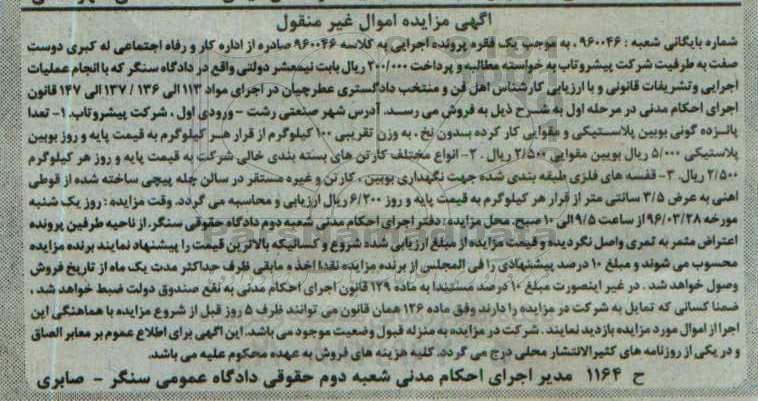 آگهی مزایده اموال غیر منقول
شماره بایگانی شعبه : ۹۶۰۰۴۶ ، به موجب یک فقره پرونده اجرایی به کلاسه ۹۶۰۰۴۶ صادره از اداره کار و رفاه اجتماعی له کبری دوست
صفت به طرفیت شرکت پیشروتاب به خواسته مطالبه و پرداخت ۲۰۰/۰۰۰ ریال بابت نیمعشر دولتی واقع در دادگاه سنگر که با انجام عملیات
اجرایی وتشریفات قانونی و با ارزیابی کارشناس اهل فن و منتخب دادگستری عطرچیان در اجرای مواد ۱۱۳ الی ۱۳۶ / ۱۳۷ الی ۱۴۷ قانون
اجرای احکام مدنی در مرحله اول به شرح ذیل به فروش می رسد. آدرس شهر صنعتی رشت - ورودی اول ، شرکت پیشروتاب. ۱- تعدا
پانزده گونی بوبین پلاستیکی و مقوایی کار کرده بدون نخ ، به وزن تقریبی ۱۰۰ کیلوگرم از قرار هر کیلوگرم به قیمت پایه و روز بوبین
پلاستیکی ۵/۰۰۰ ریال بوبین مقوایی ۲/۵۰۰ ریال . ۲- انواع مختلف کارتن های بسته بندی خالی شرکت به قیمت پایه و روز هر کیلوگرم
۲/۵۰۰ ریال. ۳- قفسه های فلزی طبقه بندی شده جهت نگهداری بوبین ، کارتن و غیره مستقر در سالن چله پیچی ساخته شده از قوطی
اهنی به عرض ۳/۵ سانتی متر از قرار هر کیلوگرم به قیمت پایه و روز ۶/۲۰۰ ریال ارزیابی و محاسبه می گردد. وقت مزایده : روز یک شنبه
مورخه ۹۶/۰۳/۲۸ از ساعت ۹/۵ الی ۱۰ صبح. محل مزایده : دفتر اجرای احکام مدنی شعبه دوم دادگاه حقوقی سنگر. از ناحیه طرفین پرونده
اعتراض مثمر به ثمری واصل نگردیده و قیمت مزایده از مبلغ ارزیابی شده شروع و کسانیکه بالاترین قیمت را پیشنهاد نمایند برنده مزایده
محسوب می شوند و مبلغ ۱۰ درصد پیشنهادی را فی المجلس از برنده مزایده نقدا اخذ ه مابقی ظرف حداکثر مدت یک ماه از تاریخ فروش
وصول خواهد شد . در غیر اینصورت مبلغ ۱۰ درصد مستندا به ماده ۱۲۹ قانون اجرای احکام مدنی به نفع صندوق دولت ضبط خواهد شد .
ضمنا کسانی که تمایل به شرکت در مزایده را دارند وفق ماده ۱۲۶ همان قانون می توانند ظرف ۵ روز قبل از شروع مزایده با هماهنگی این
اجرا از اموال مورد مزایده بازدید نمایند . شرکت در مزایده به منزله قبول وضعیت موجود می باشد. این آگهی برای اطلاع عموم بر معابر الصاق
و در یکی از روزنامه های کثیرالانتشار محلی درج می گردد. کلیه هزینه های فروش به عهده محکوم علیه می باشد.
ح ۱۱۶۴ مدیر اجرای احکام مدنی شعبه دوم حقوقی دادگاه عمومی سنگر - صابری